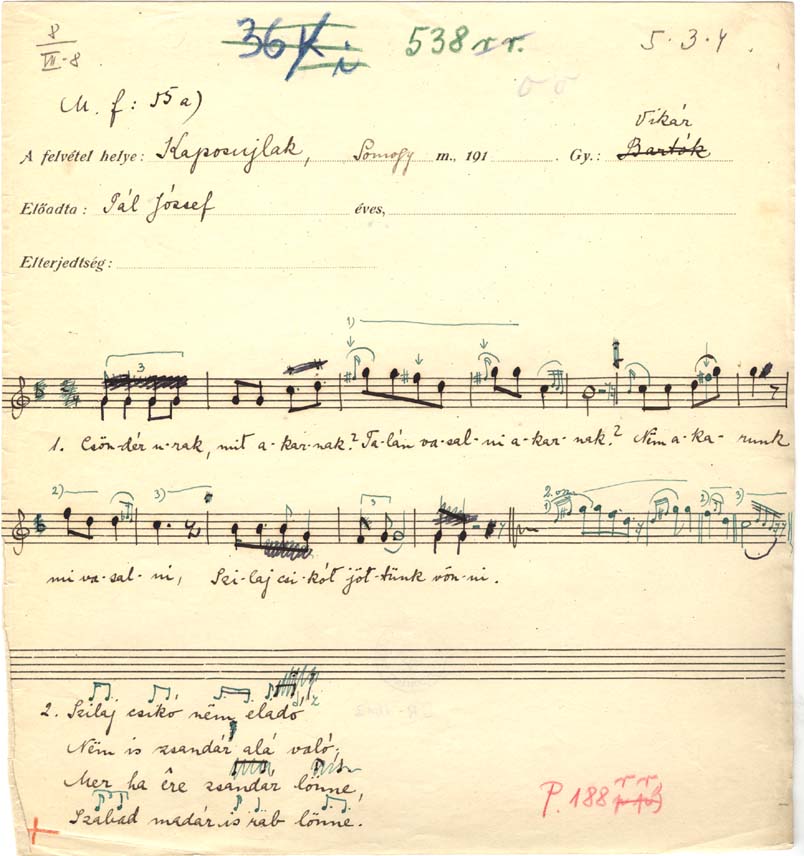 8
VII-8
538 r r.
5·3·4
M. f: 55a)
Vikár
A felvétel helye: Kaposujlak, Somogy m., 191 Gy.: Bartók
Előadta: Pál József éves,
Elterjedtség:
1)
3
1. Csön-dér u-rak, mit a-kar-nak? Ta-lán va-sal-ni a-kar-nak? Nëm a-ka-runk
2) 3) 3 2. 1) 2) 3)
mi va-sal-ni, Szi-laj csi-kót jöt-tünk vön-ni.
2. Szilaj csikó nëm eladó
Nëm is zsandár alá való;
Mer ha êre zsandár lönne,
Szabad madár is rab lönne.
P. 188